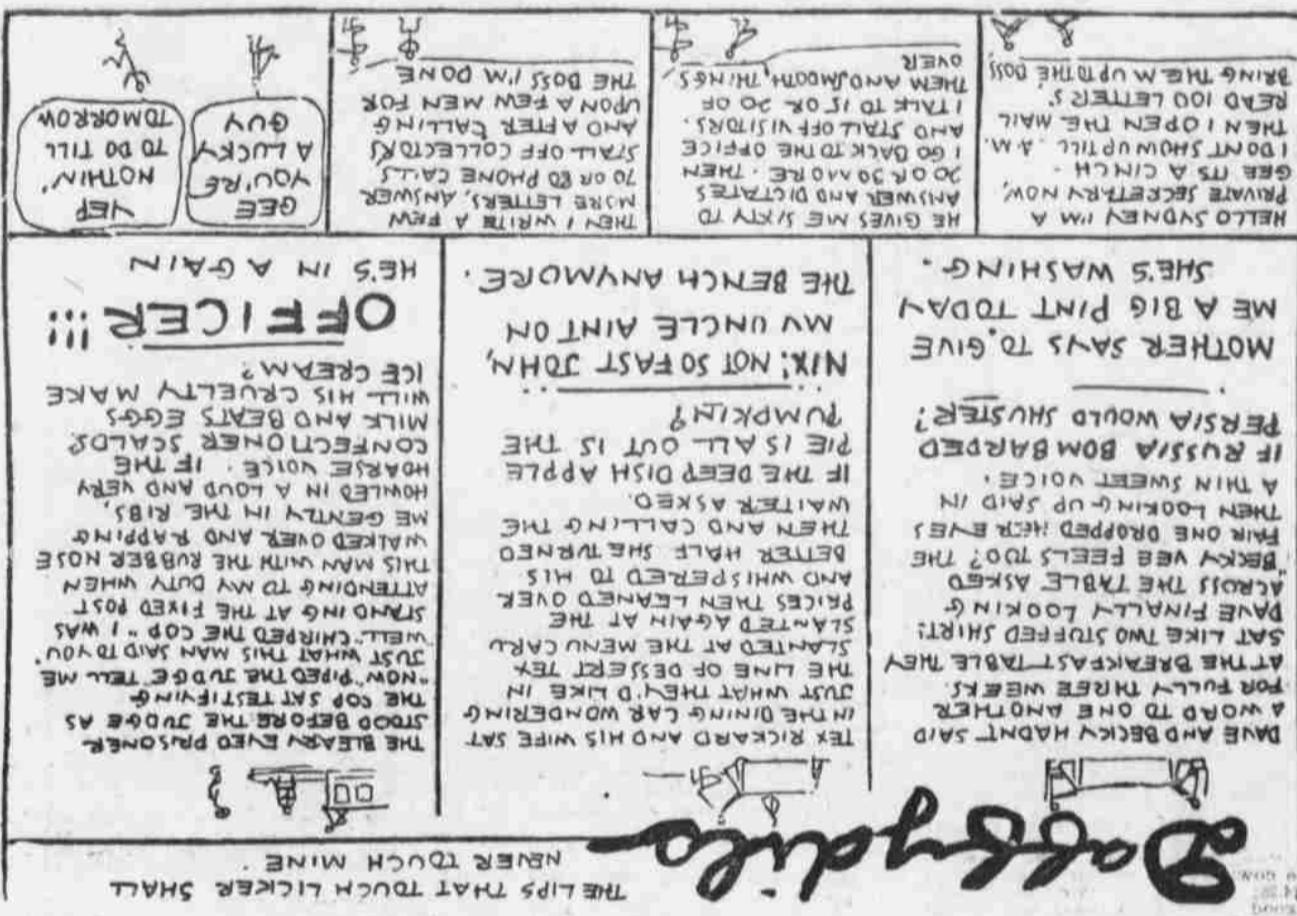 Daffydils
THE LIPS THAT TOUCH LICKER SHALL
NEVER TOUCH MINE.
DAVE AND BECKY HADNT SAID
A WORD TO ONE ANOTHER
FOR FULLY THREE WEEKS.
AT THE BREAKFAST TABLE THEY
SAT LIKE TWO STUFFED SHIRTS
DAVE FINALLY LOOKING
ACROSS THE TABLE ASKED
"BECKY VEE FEELS TOO? THE
FAIR ONE DROPPED HER EYES
THEN LOOKING UP SAID IN
A THIN SWEET VOICE.
IF RUSSIA BOMBARDED
PERSIA WOULD SHUSTER?
MOTHER SAYS TO GIVE
ME A BIG PINT TODAY
SHE'S WASHING.
TEX RICKARD AND HIS WIFE SAT
IN THE DINING CAR WONDERING
JUST WHAT THEY'D LIKE IN
THE LINE OF DESSERT TEX
SLANTED AT THE MENU CARD
SLANTED AGAIN AT THE
PRICES THEN LEANED OVER
AND WHISPERED TO HIS
BETTER HALF SHE TURNED
THEN AND CALLING THE
WAITER ASKED.
IF THE DEEP DISH APPLE
PIE IS ALL OUT IS THE
PUMPKIN?
NIX! NOT SO FAST JOHN,
MY UNCLE AINT ON
THE BENCH ANYMORE.
THE BLEARY EYED PRISONER
STOOD BEFORE THE JUDGE AS
THE COP SAT TESTIFYING
"NOW" PIPED THE JUDGE TELL ME
JUST WHAT THIS MAN SAID TO YOU.
WELL" CHIRPED THE COP "I WAS
STANDING AT THE FIXED POST
ATTENDING TO MY DUTY WHEN
THIS MAN WITH THE RUBBER NOSE
WALKED OVER AND RAPPING
ME GENTLY IN THE RIBS,
HOWLED IN A LOUD AND VERY
HOARSE VOICE. IF THE
CONFECTIONER SCALDS
MILK AND BEATS EGGS
WILL HIS CRUELTY MAKE
ICE CREAM?
OFFICER!!!
HE'S IN AGAIN
HELLO SYDNEY I'M A
PRIVATE SECRETARY NOW,
GEE ITS A CINCH.
I DONT SHOW UP TILL A.M.
THEN I OPEN THE MAIL
READ 100 LETTERS
BRING THEM UP TO THE BOSS
HE GIVES ME SIXTY TO
ANSWER AND DICTATES
20 OR 30 MORE. THEN
I GO BACK TO THE OFFICE
AND STALL OFF VISITORS.
I TALK TO 15 OR 20 OF
THEM AND SMOOTH THINGS
OVER
THEN I WRITE A FEW
MORE LETTERS, ANSWER
70 OR 80 PHONE CALLS
STALL OFF COLLECTORS
AND AFTER CALLING
UPON A FEW MEN FOR
THE BOSS I'M DONE
GEE
YOU'RE
A LUCKY
GUY
YEP
NOTHIN'
TO DO TILL
TOMORROW